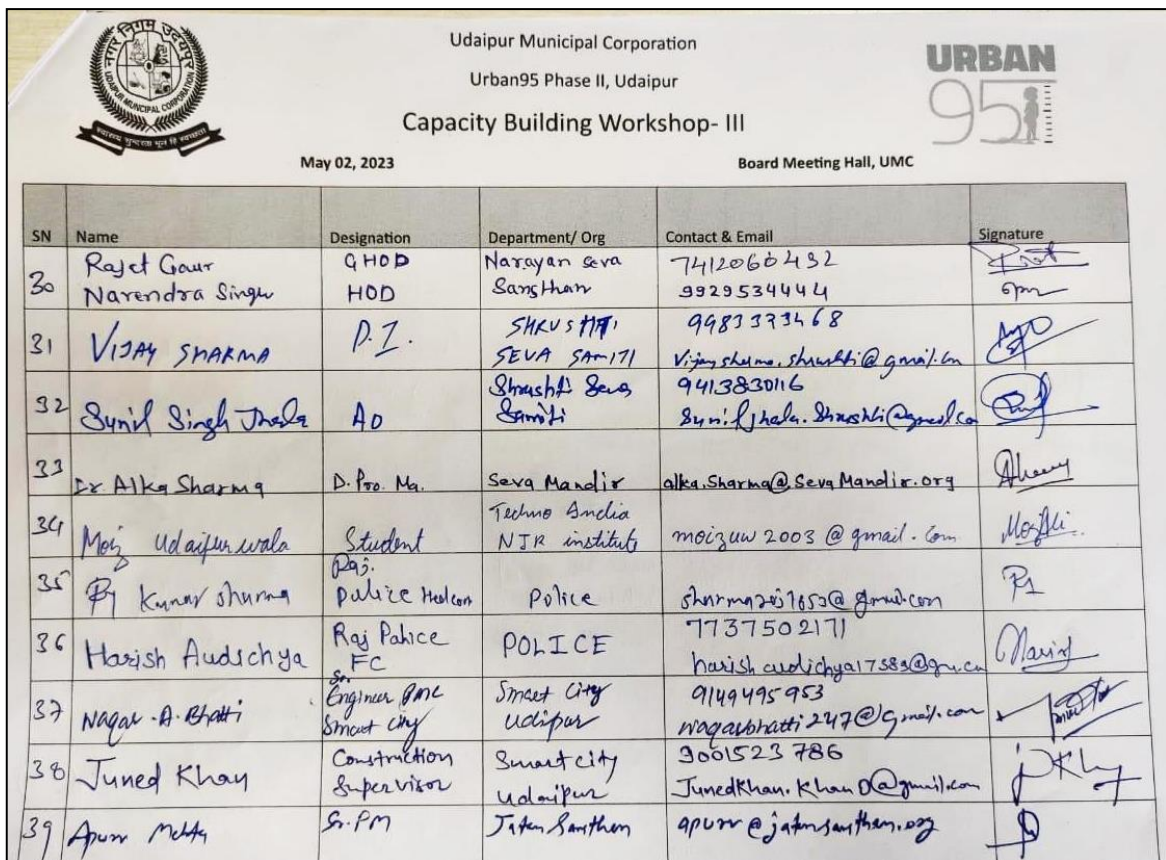 नगर निगम उदयपुर
UDAIPUR MUNICIPAL CORPORATION
Udaipur Municipal Corporation
Urban95 Phase II, Udaipur
Capacity Building Workshop- III
URBAN
95
May 02, 2023 Board Meeting Hall, UMC
SN Name Designation Department/ Org Contact & Email Signature
30 Rajet Gaur GHOD Narayan Seva 7412060432
Narendra Singh HOD Sansthan 9929534444
31 VIJAY SHARMA P.I. SHRUSHTI SEVA SAMITI 9983373468
Vijaysharma.shrushti@gmail.com
32 Sunil Singh Jhala AO Shrushti Seva Samiti 9413830116
Suniljhala.Shrushti@gmail.com
33 Dr. Alka Sharma D. Pro. Ma. Seva Mandir alka.Sharma@SevaMandir.org
34 Moiz Udaipurwala Student Techno India
NJR institute moizuw2003@gmail.com
35 Kumar Sharma Raj. Police Police
36 Harish Audschya Raj Police FC POLICE 7737502171
37 A. Bhatti Sr. Engineer PMC Smart City Smart City Udipur 9149495953
waqarbhatti247@gmail.com
38 Juned Khan Construction Supervisor Smart city Udaipur 9001523786
JunedKhan.KhanD@gmail.com
39 Apurv Mehta Sr. PM Jatan Sansthan apurv@jatansansthan.org